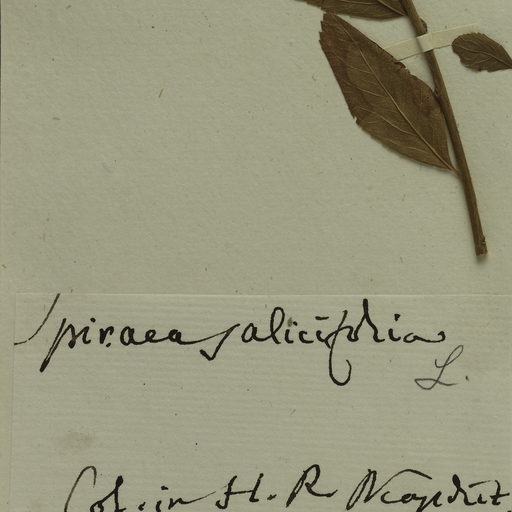 Spiraea salicifolia
L.
Col. in H. R. Neapolit.